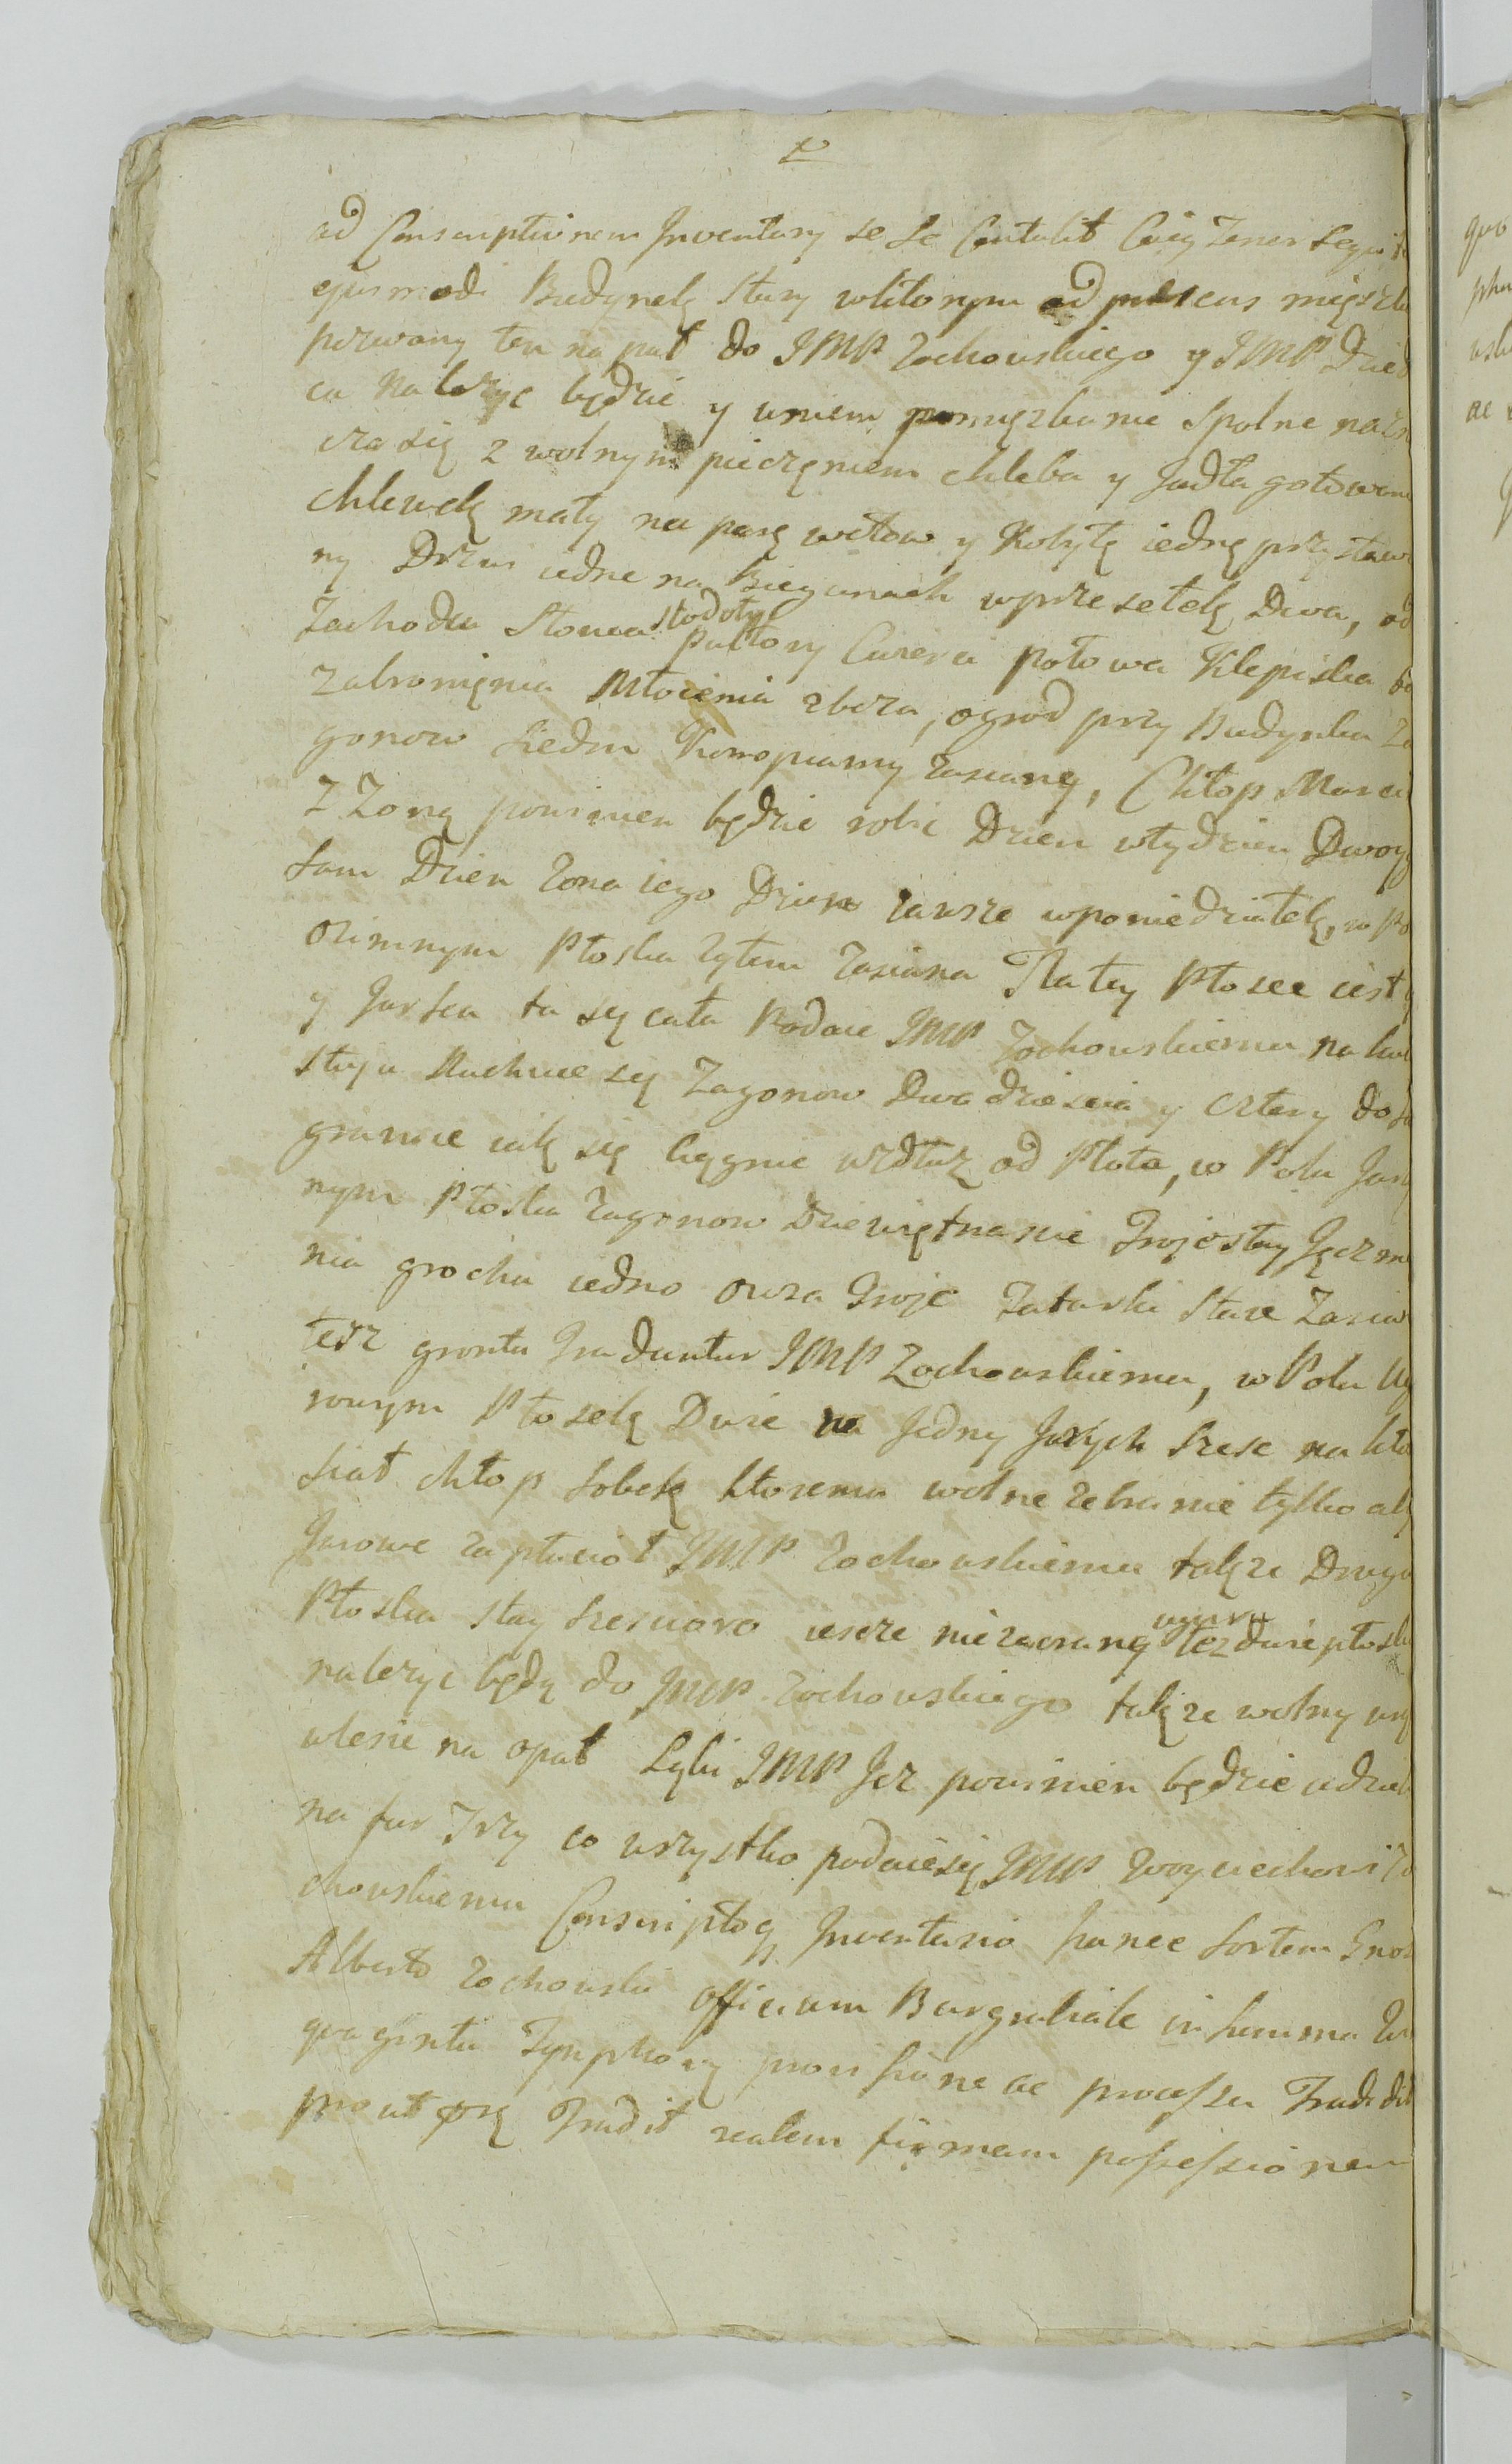 ad Conscriptionem Inventary se se Contulit Cuig Tenor Sequi
ejusmodi Budynek stary wktorym ad praesens mięszka
perwany ten na puł do JMP Zochowskiego y JMP Dzied
ca należyc będzie y wniem pomięszkanie Spolne nazn
cza się z wolnym pieczęniem chleba y Jadła gotowan
chlewek mały na parę wołow y Kobyłę iedną przystaw
ny Drzwi iedne na Biegunach wprzesetek Dwa, od
Zachodu Słonca stodoły pułtory Cwierci połowa Klepiska
zabronięnia Młocenia zboza, ogrod przy Budynku Za
gonow siedm Konopiamy zasiany, Chłop Marci
z Zoną powinien będzie robic Dzien wtydzien Dwoy
Sam Dzien zona iego Dzien zawsze wponiedziałek, w Po
ozimnym Płoska żytem zasiana Na tey Płosce iest
y Jarka ta się cała Podaie JMP Zochowskiemu
staja Ruchuie się Zagonow Dwadziescia y cztery do
granice iak się ciągnie wzdłuz od Płota, w Polu Jary
nym Płoska zagonow Dziewiętnascie Troje stay Jęczm
nia grochu iedno owsa Troje Tatarki staie Zasiw
tesz gronta Traduntur JMP Zochowskiemu, w Polu Ug
rowym Płosek Dwie na Jedny Jarych szesc na kto
siał chłop sobek ktoremu wolne zebranie tylko aby
Jurowe zapłacioł JMP Zochowskiemu takze Druga
Płoska stay szescioro iescze niezaorany uguru tez dwie płoski
nalezyc będą do JMP Zochowskiego takze wolny
wlesie na opał Lyki JMP Jez powinien będzie udziel
na fur Trzy co wszystko podaiesię JMP Woyciechowi Zo
chowskiemu Conscriptoq Inventario hancce Sortem Gnos
Alberto Zochowski officium Burgrabiale in Summa
qvaginta Tynphorū provisione ac processu Tradidit
prout prę Tradit realem firmam possessionem